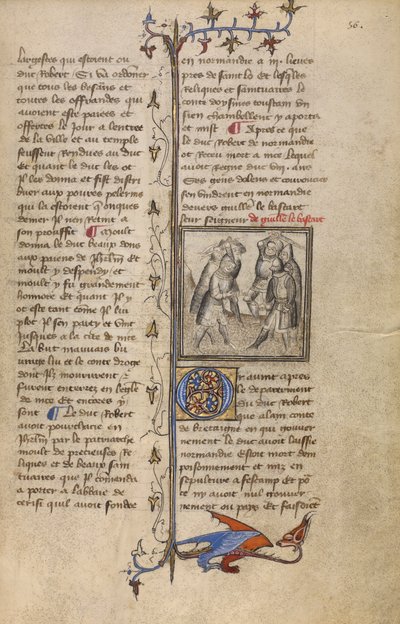 56.
largesses qui estoient ou
duc Robert. Si va ordoner
que tous les besans et
toutes les offrandes qui
avoient este paiees et
offertes le jour a lentree
de la ville et au temple
feussent rendues au duc
et quant le duc les ot
Il les donna et fist distri
buer aux povres pelerins
qui la estoient que onques
denier Il nen retint a
son prouffit ¶ moult
donna le duc beaux dons
aux paiens de Jhrlm et
moult y despendy et
moult y fu grandement
honnore et quant Il y
ot este tant come Il lui
plot Il sen party et vint
jusques a la cite de nice
La but mauvais bu
vrage lui et le conte
dont Ilz moururent et
furent enterrez en leglise
de nice et encores y
sont ¶ Le duc Robert
avoit pourchacie en
Jhrlm par le patriarche
moult de precieuses Re
liques et de beaux sain
tuaires que Il comanda
a porter a labbaie de
cerisi quil avoit fondee
en normandie a
pres de saint lo et lesqles
Reliques et saintuaires le
conte doysmes toustain
sien chambellenc y aporta
et mist ¶ Apres ce que
le duc Robert de normandie
ot receu mort a nice lequel
avoit regne duc
Ses gens dolens et couroucies
sen vindrent en normandie
devers guille le bastart
leur seigneur de guille le bastart
Or avint apres
le departement
du duc Robert
que alain conte
de bretaigne en qui gouver
nement le duc avoit laissie
normandie estoit mort dem
poisonnement et mis en
sepulture a fescamp et po
ce ny avoit nul gouver
nement ou pais et faisoient